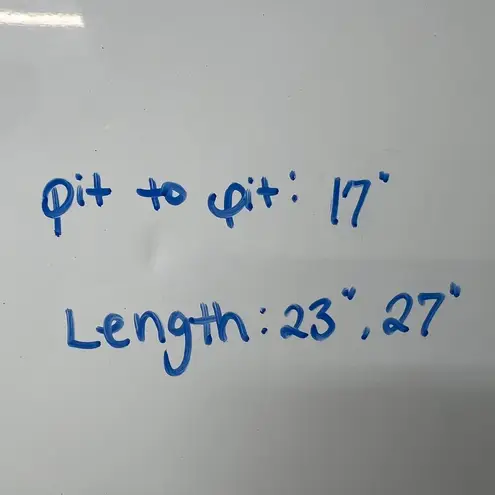 pit to pit: 17"
Length: 23", 27"